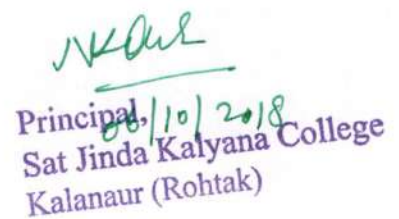 Principal,
06/10/2018
Sat Jinda Kalyana College
Kalanaur (Rohtak)